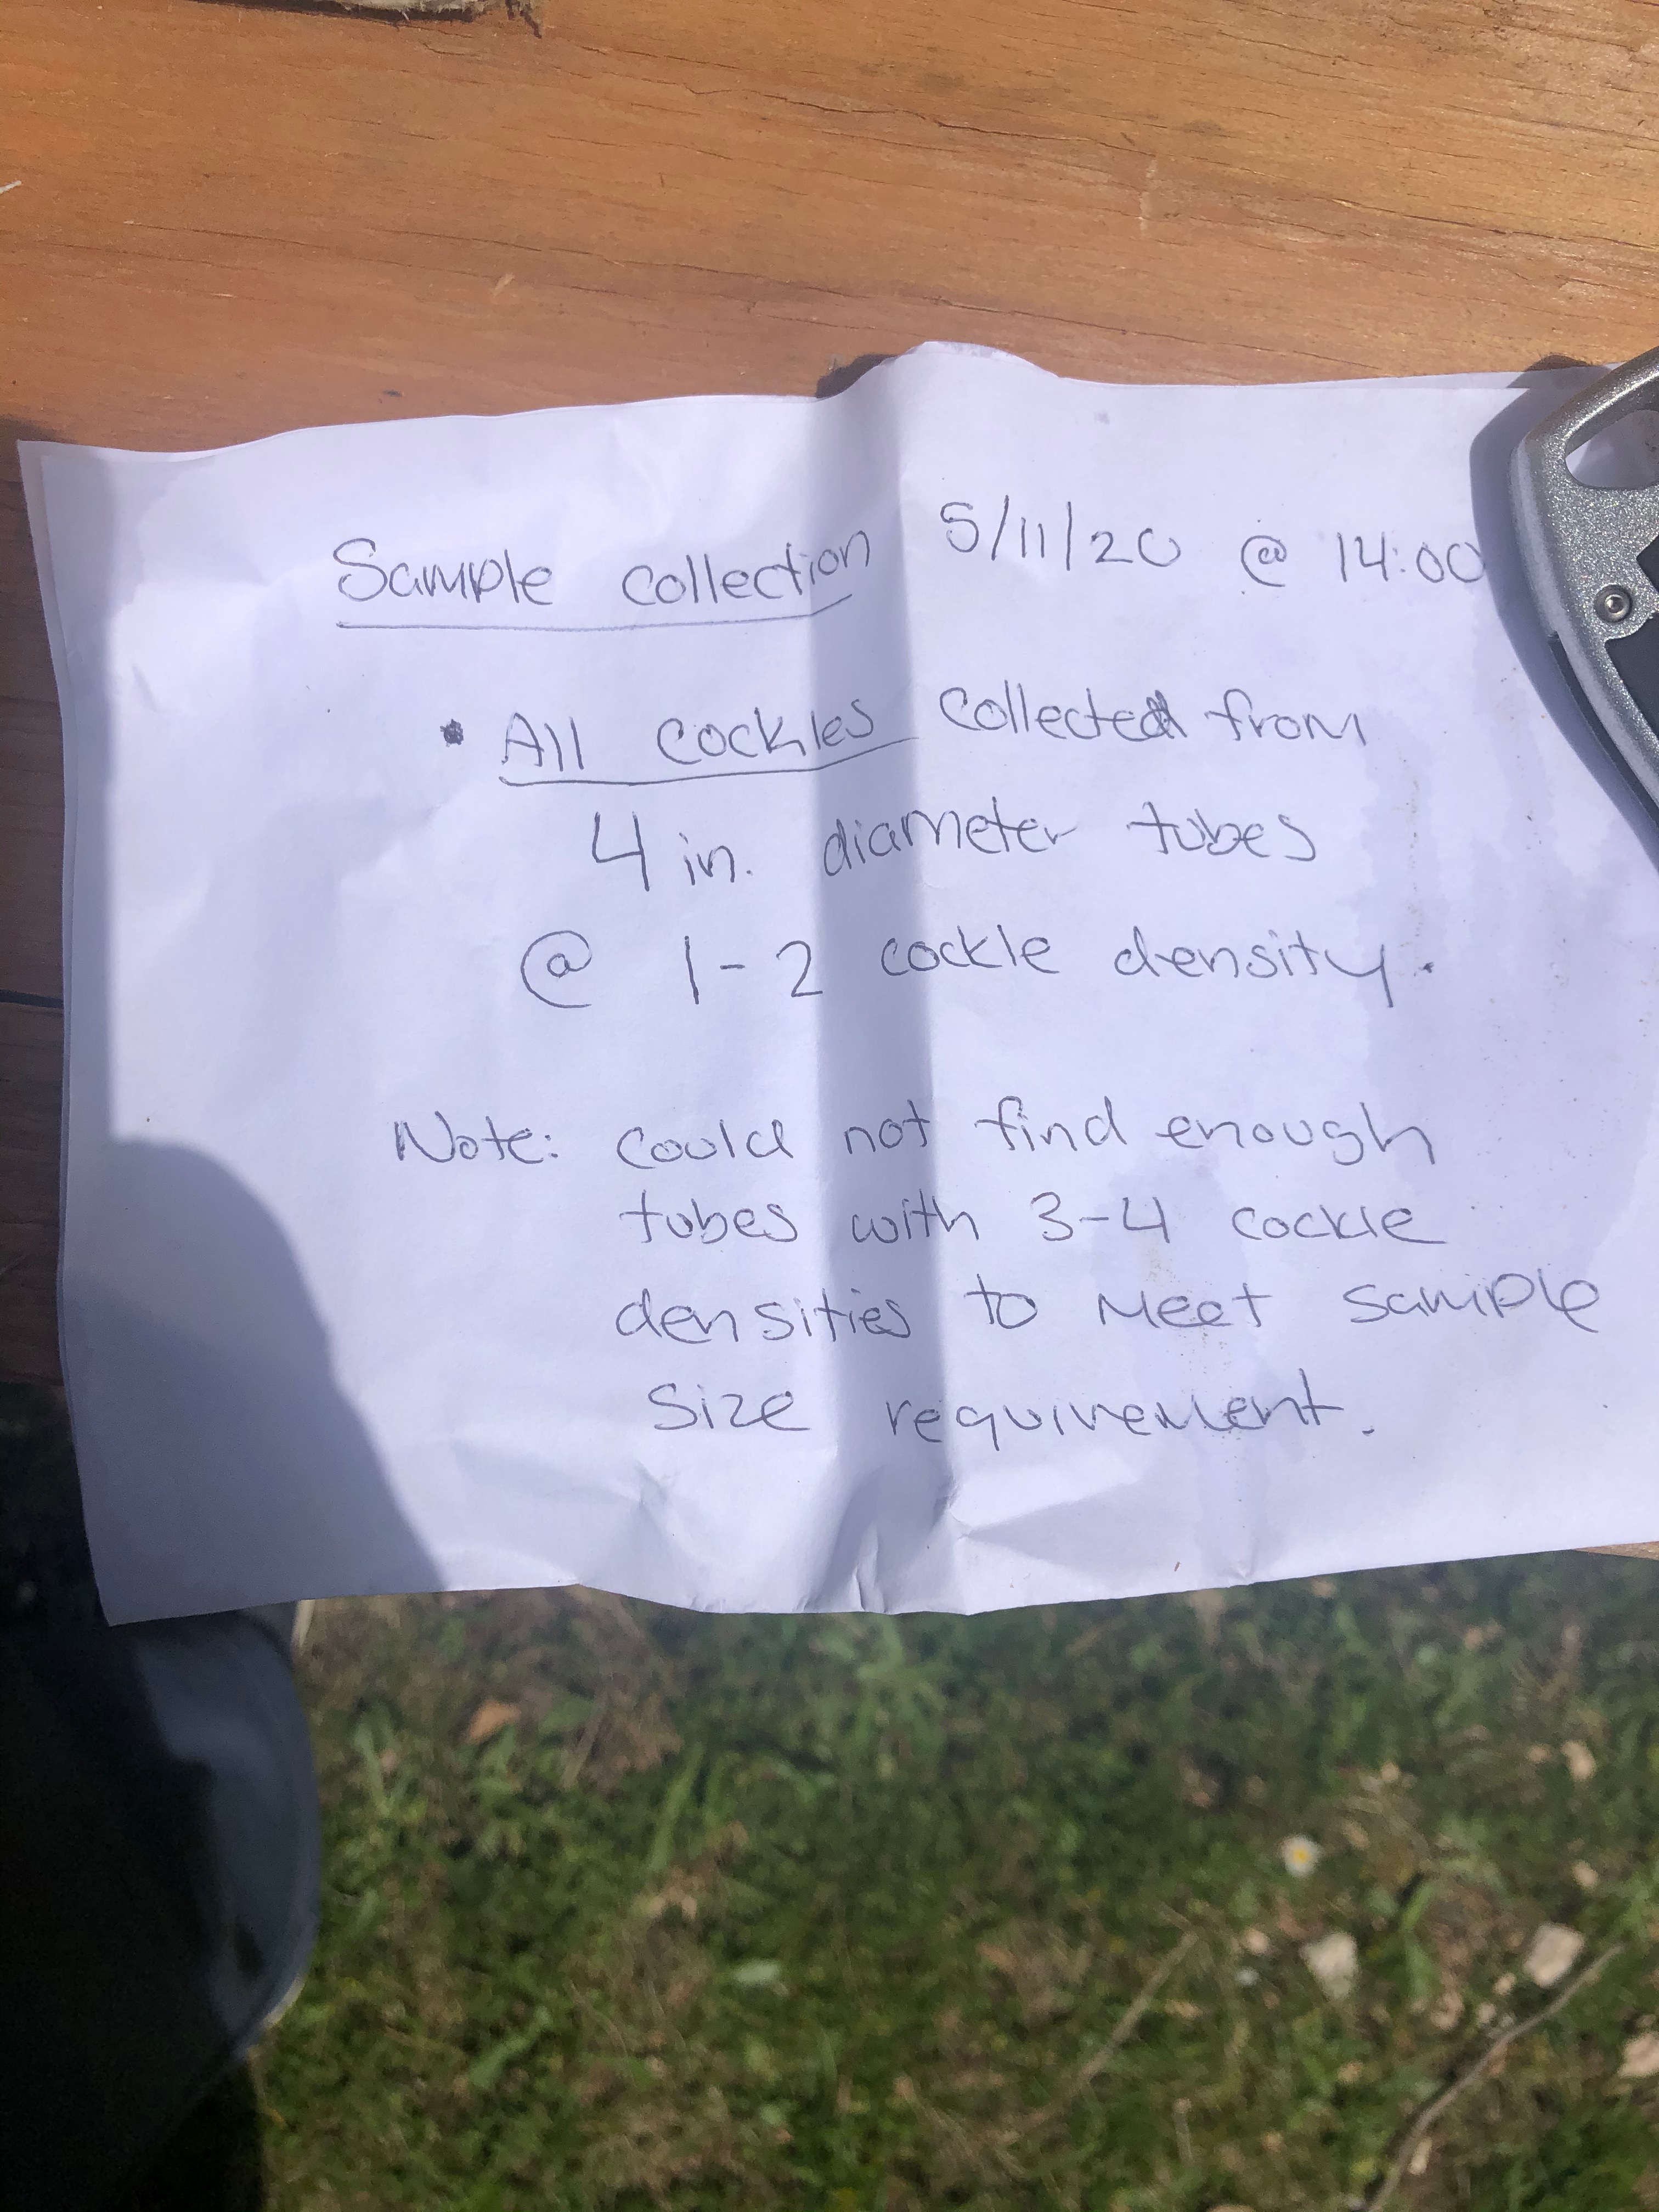 Sample collection 5/11/20 @ 14:00
• All cockles collected from
4 in. diameter tubes
@ 1-2 cockle density.
Note: could not find enough
tubes with 3-4 cockle
densities to meet sample
size requirement.